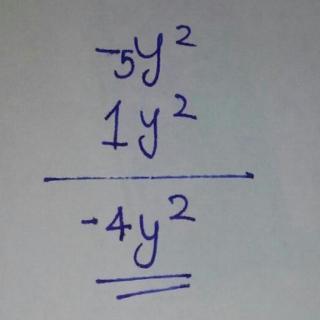 -5y²
1y²
-4y²